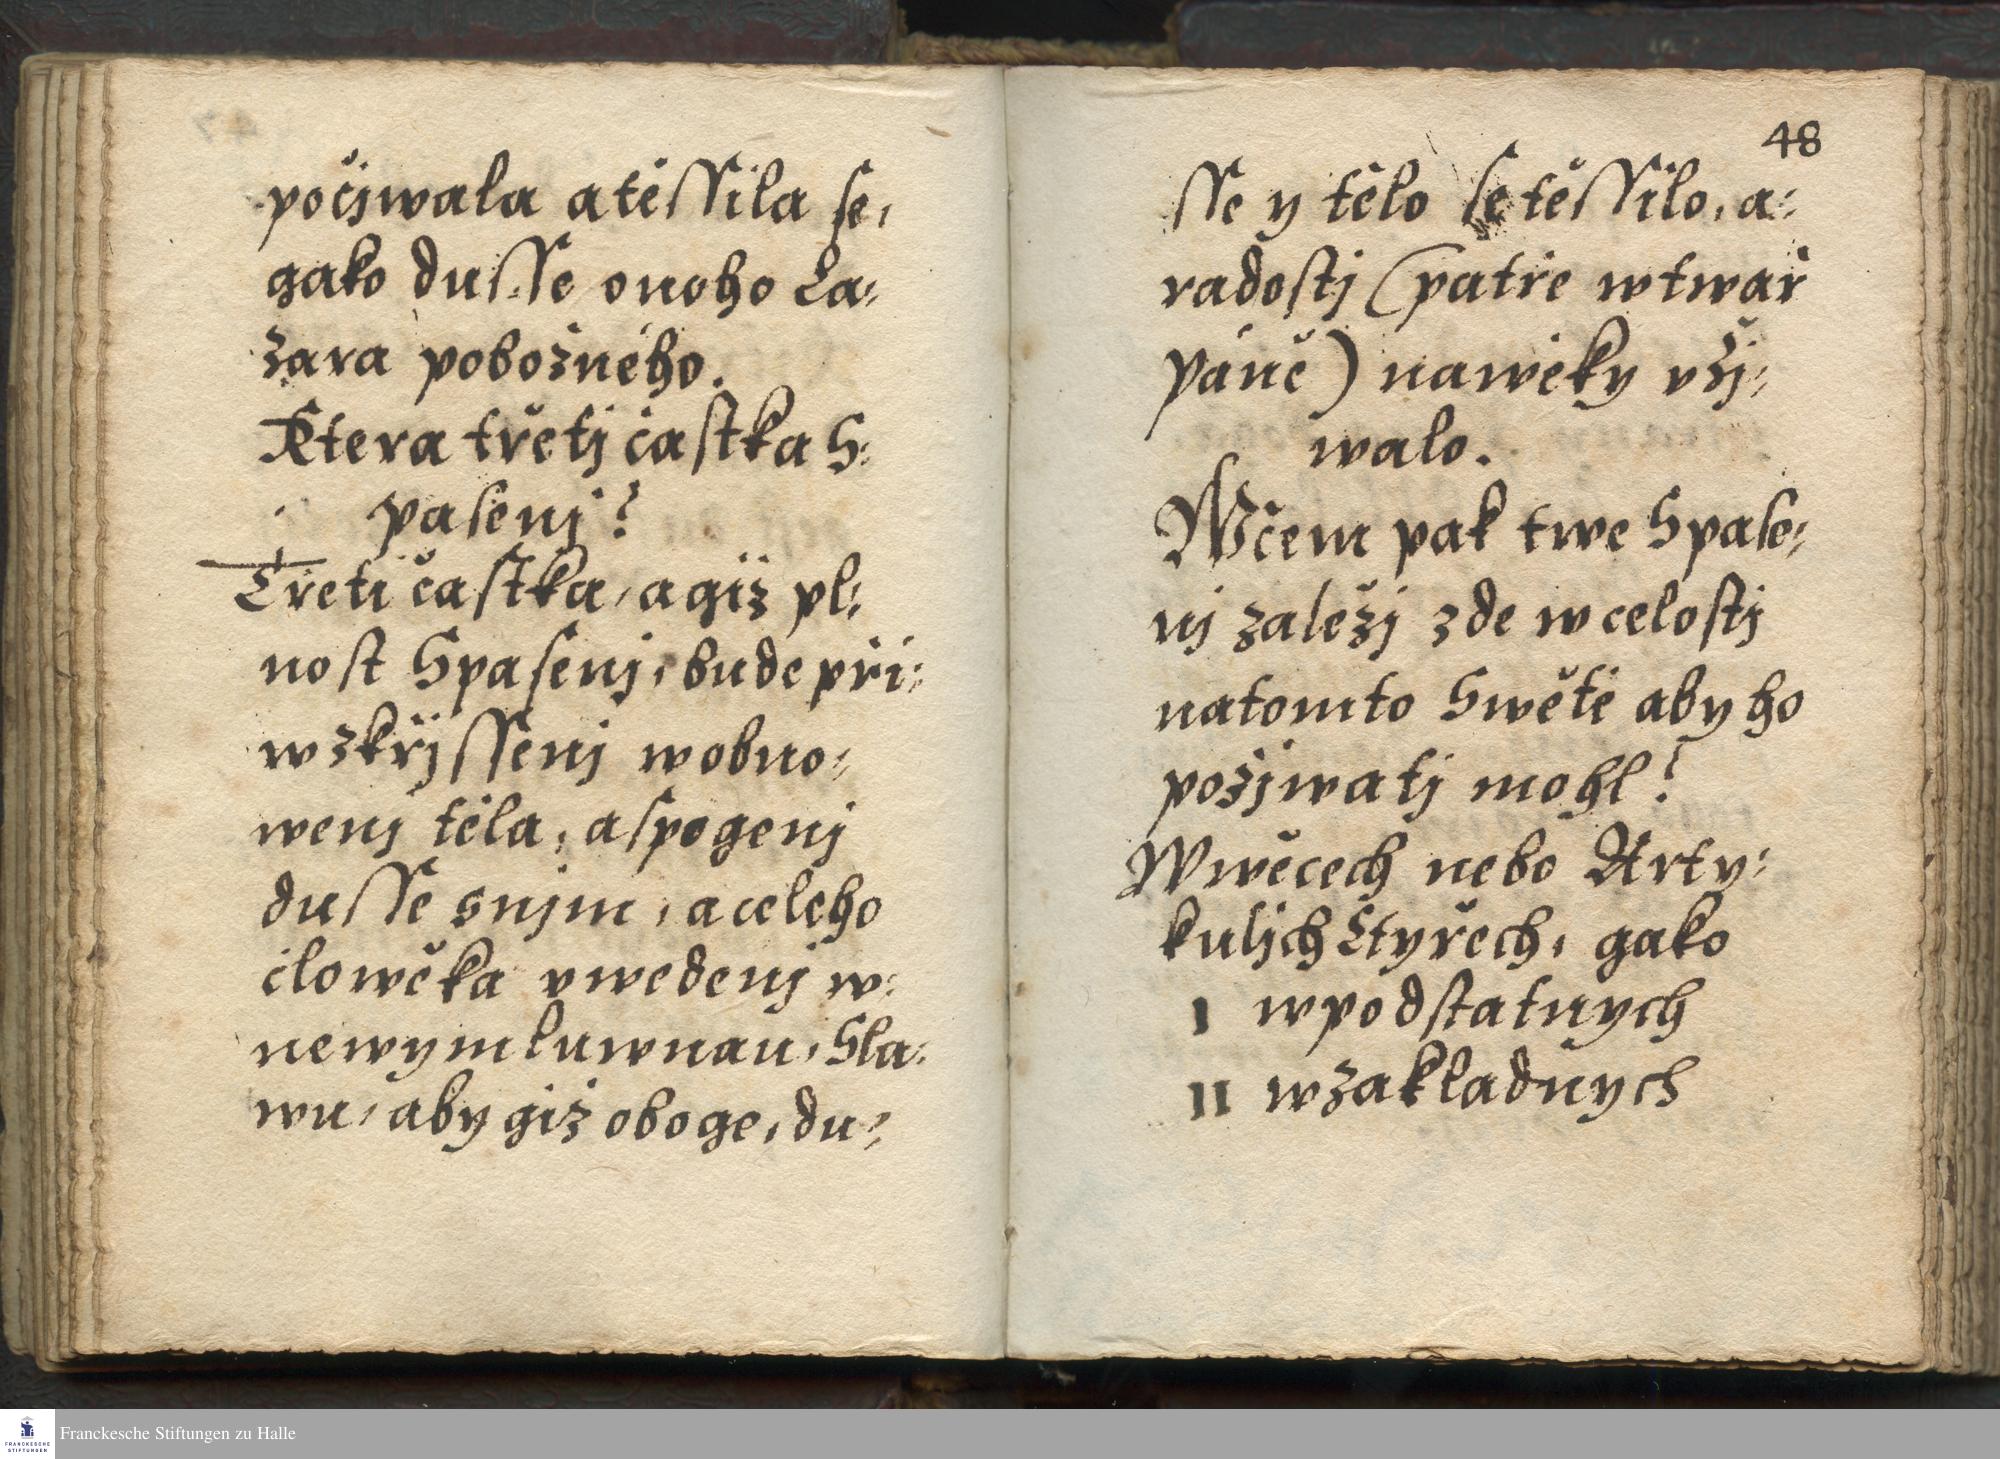 počjwala a těssila se,
gako dusse onoho La-
zara pobožného.
Ktera třetj částka S-
pasenj?
Třetí částka, a giž pl-
nost Spasenj, bude při-
wzkřjssenj w obno-
wenj těla, a spogenj
dusse snjm, a celeho
člowěka vwedenj w-
newymluwnau, Sla-
wu, aby giž oboge, du-
48
sse y tělo se těssilo, a-
radostj (patře w twař
páně) nawěky vžj-
walo.
Wčem pak twe Spase-
nj zaležj zde w celostj
natomto Swětě aby ho
požjwatj mohl?
W wěcech nebo Arty-
kuljch čtyřech, gako
I wpodstatnych
II wzakladnych
Franckesche Stiftungen zu Halle
FRANCKESCHE
STIFTUNGEN